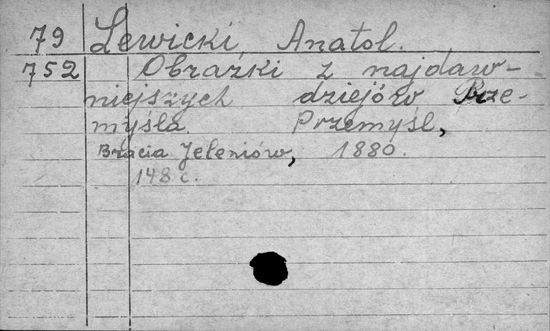 79 Lewicki, Anatol.
752 Obrazki z najdaw-
niejszych dziejów Prze-
myśla. Przemyśl,
Bracia Jeleniów, 1880.
148 c.